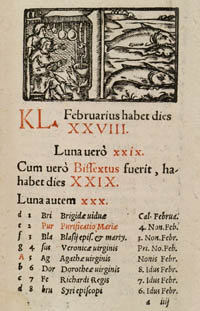 KL Februarius habet dies
XXVIII.
Luna verò xxix.
Cum verò Bissextus fuerit, ha-
habet dies XXIX.
Luna autem xxx.
d 1 Bri Brigidæ viduæ Cal. Februa.
e 2 Pur Purificatio Mariæ 4. Non. Feb.
f 3 Bla Blasij epis. & marty. 3. Non. Feb.
g 4 sus Veronicæ virginis Pri. No. Feb.
A 5 Ag Agathæ virginis Nonis Febr.
b 6 Dor Dorotheæ virginis 8. Idus Febr.
c 7 Fe Richardi Regis 7. Idus Febr.
d 8 bru yri episcopi 6. Idus Febr.
a iiij